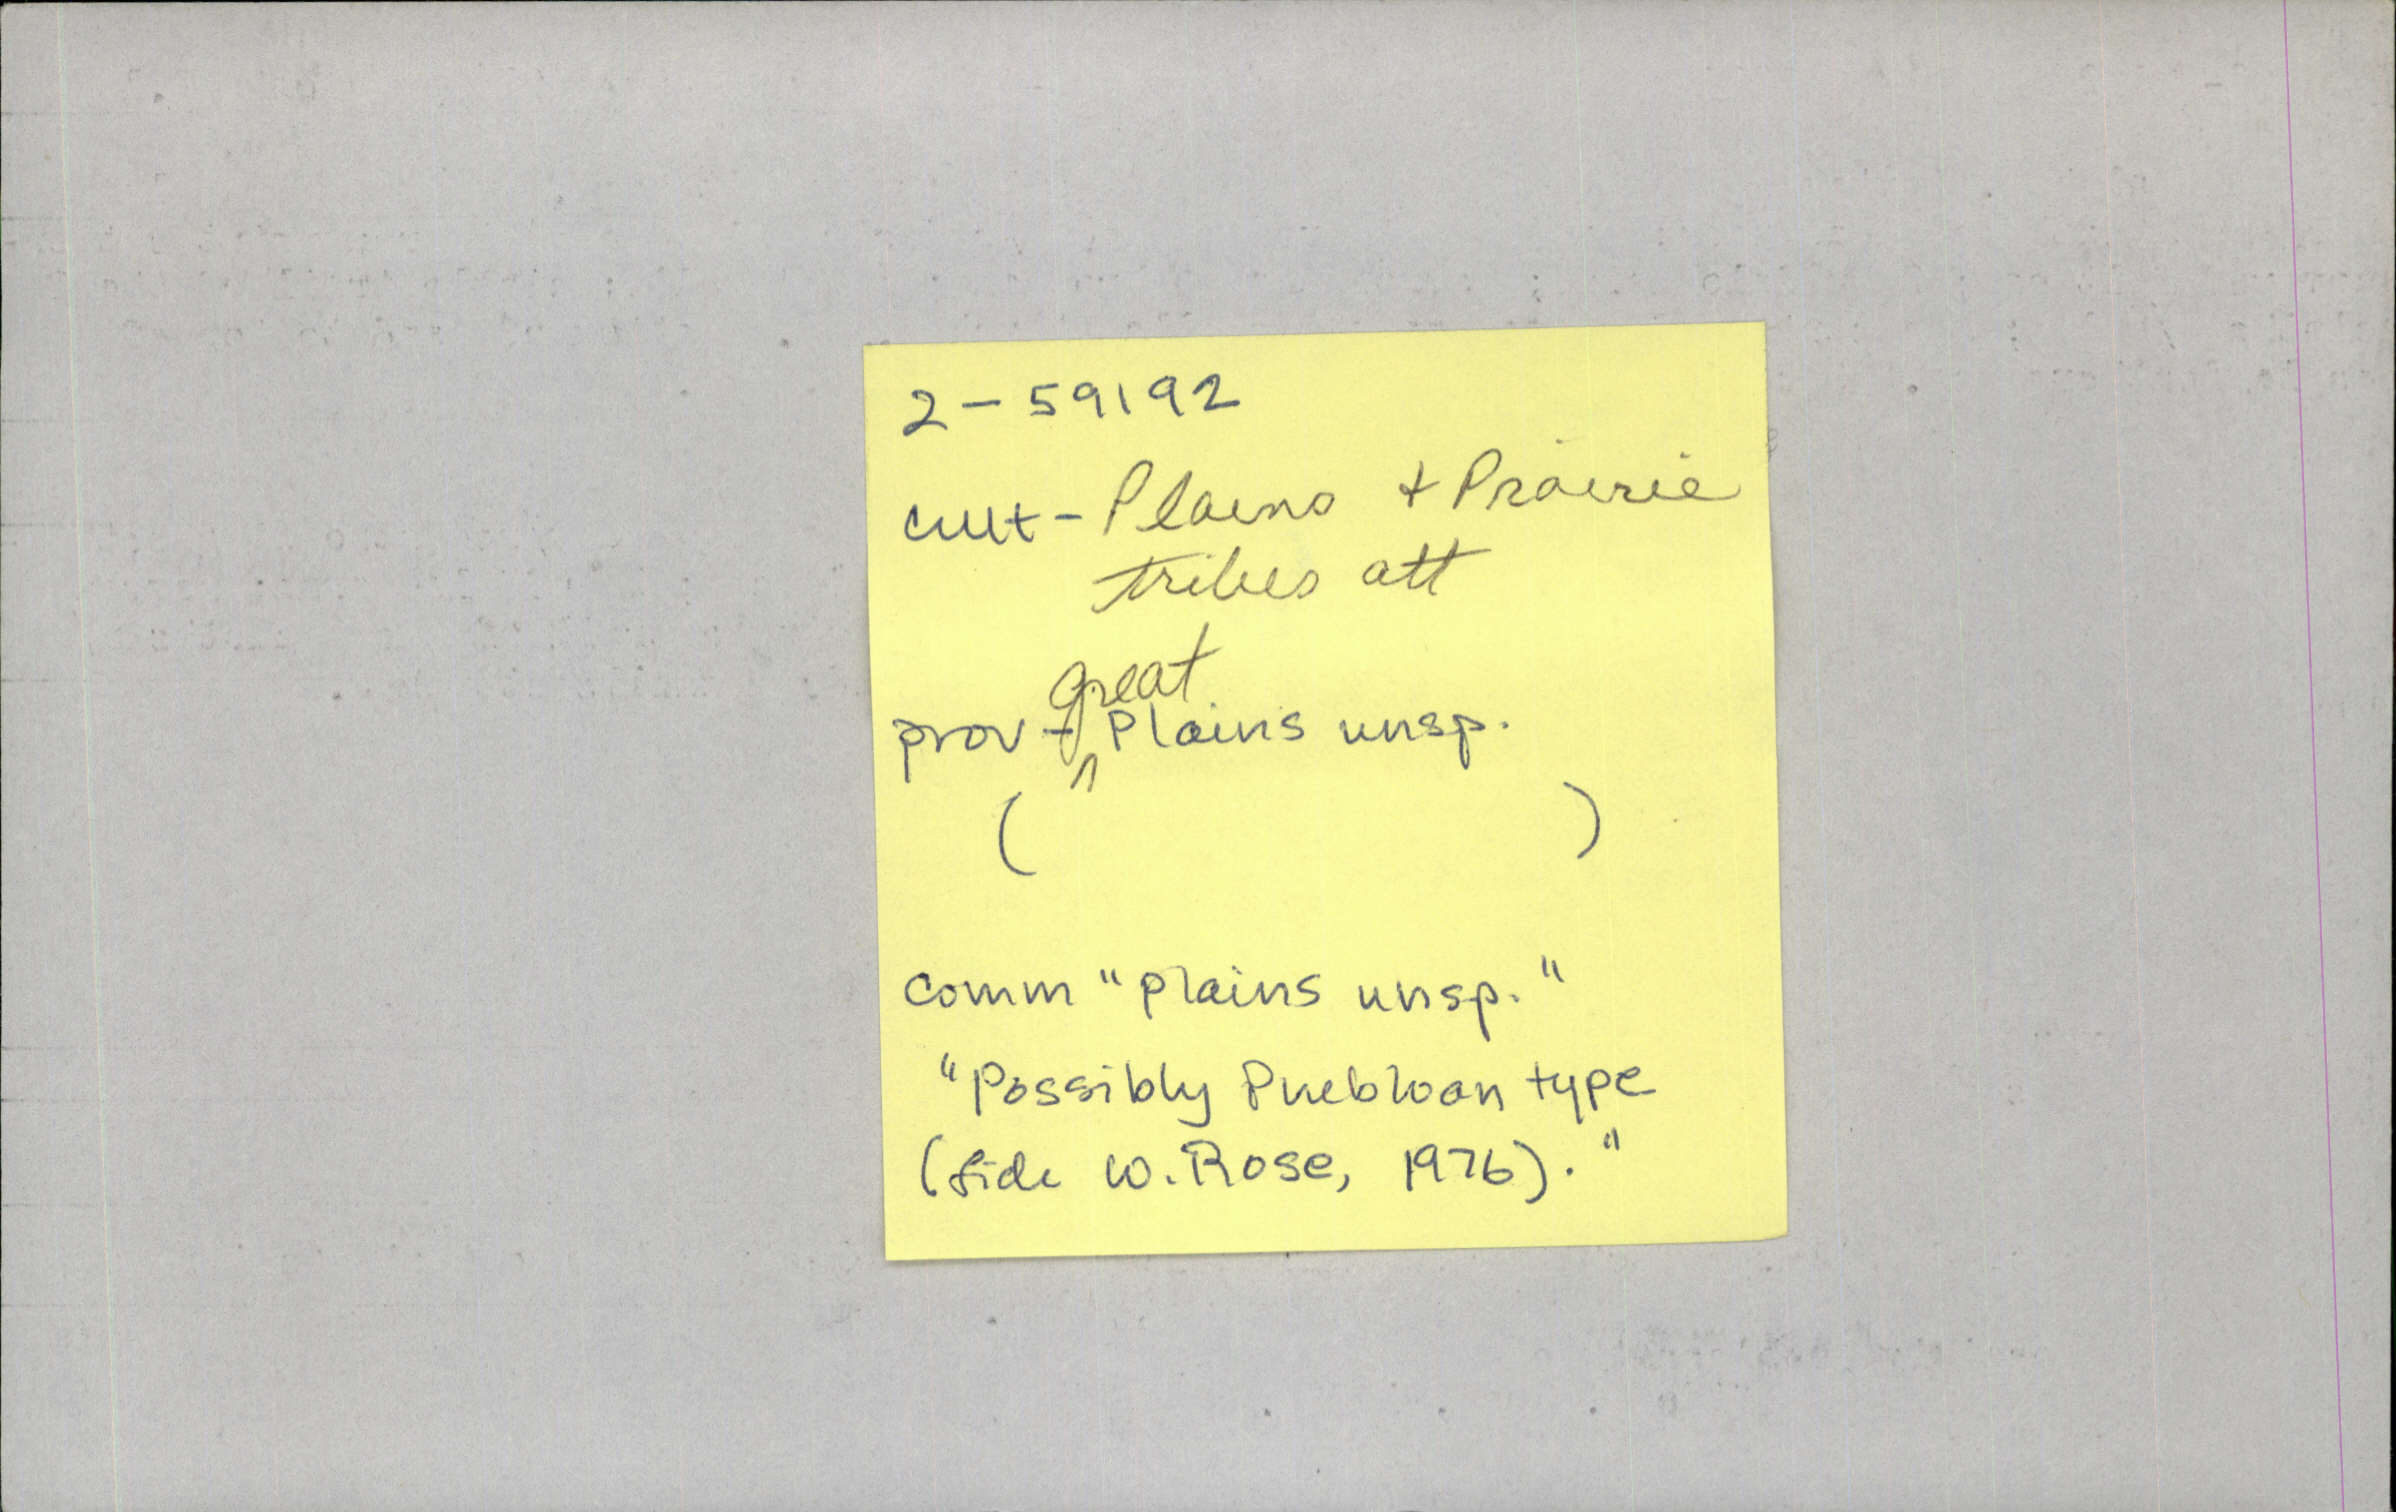 2-59192
cult - Plains + Prairie
tribes att
prov - great Plains unsp.
( )
comm "plains unsp."
"Possibly Puebloan type
(fide W. Rose, 1976)."